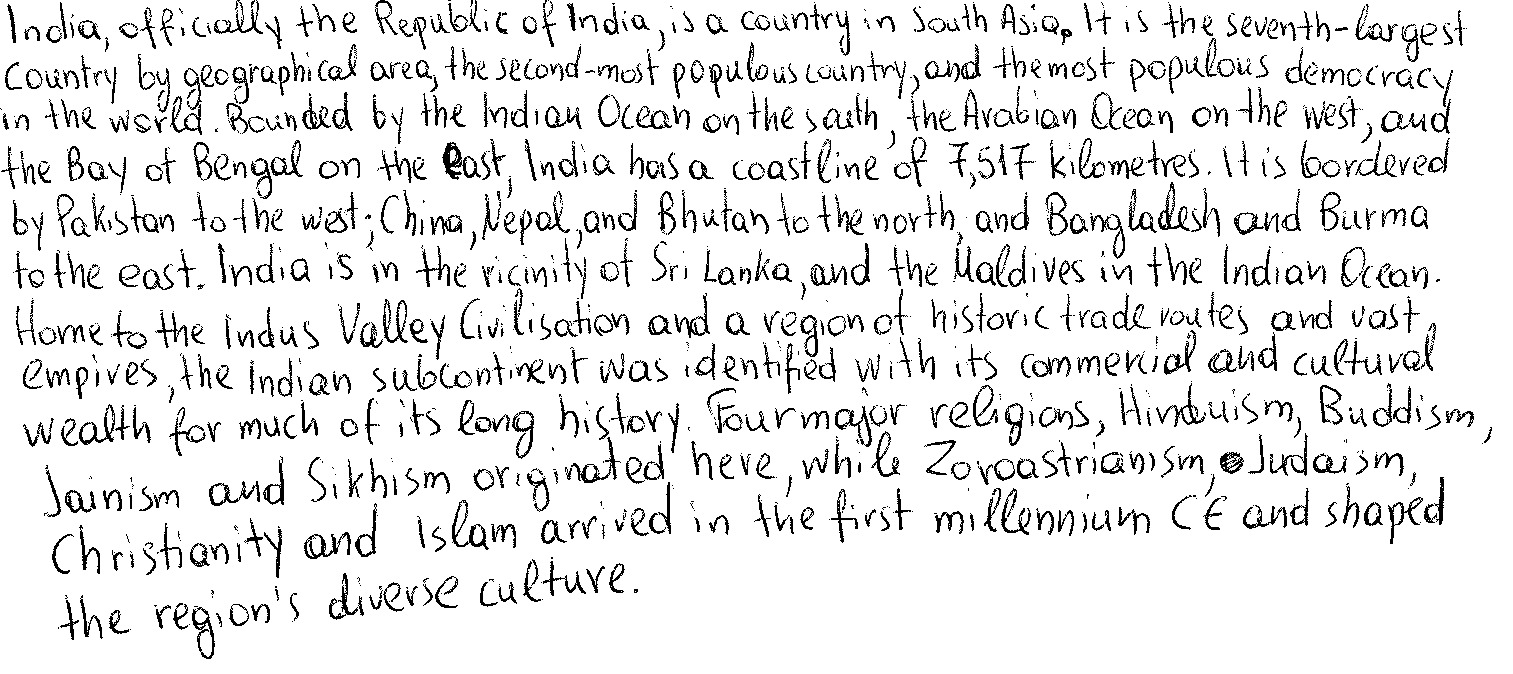 India, officially the Republic of India, is a country in South Asia. It is the seventh-largest
country by geographical area, the second-most populous country, and the most populous democracy
in the world. Bounded by the Indian Ocean on the south, the Arabian Ocean on the west, and
the Bay of Bengal on the east, India has a coastline of 7,517 kilometres. It is bordered
by Pakistan to the west; China, Nepal, and Bhutan to the north, and Bangladesh and Burma
to the east. India is in the vicinity of Sri Lanka, and the Maldives in the Indian Ocean.
Home to the Indus Valley Civilisation and a region of historic trade routes and vast
empires, the Indian subcontinent was identified with its commercial and cultural
wealth for much of its long history. Four major religions, Hinduism, Buddism,
Jainism and Sikhism originated here, while Zoroastrianism, Judaism,
Christianity and Islam arrived in the first millennium CE and shaped
the region's diverse culture.